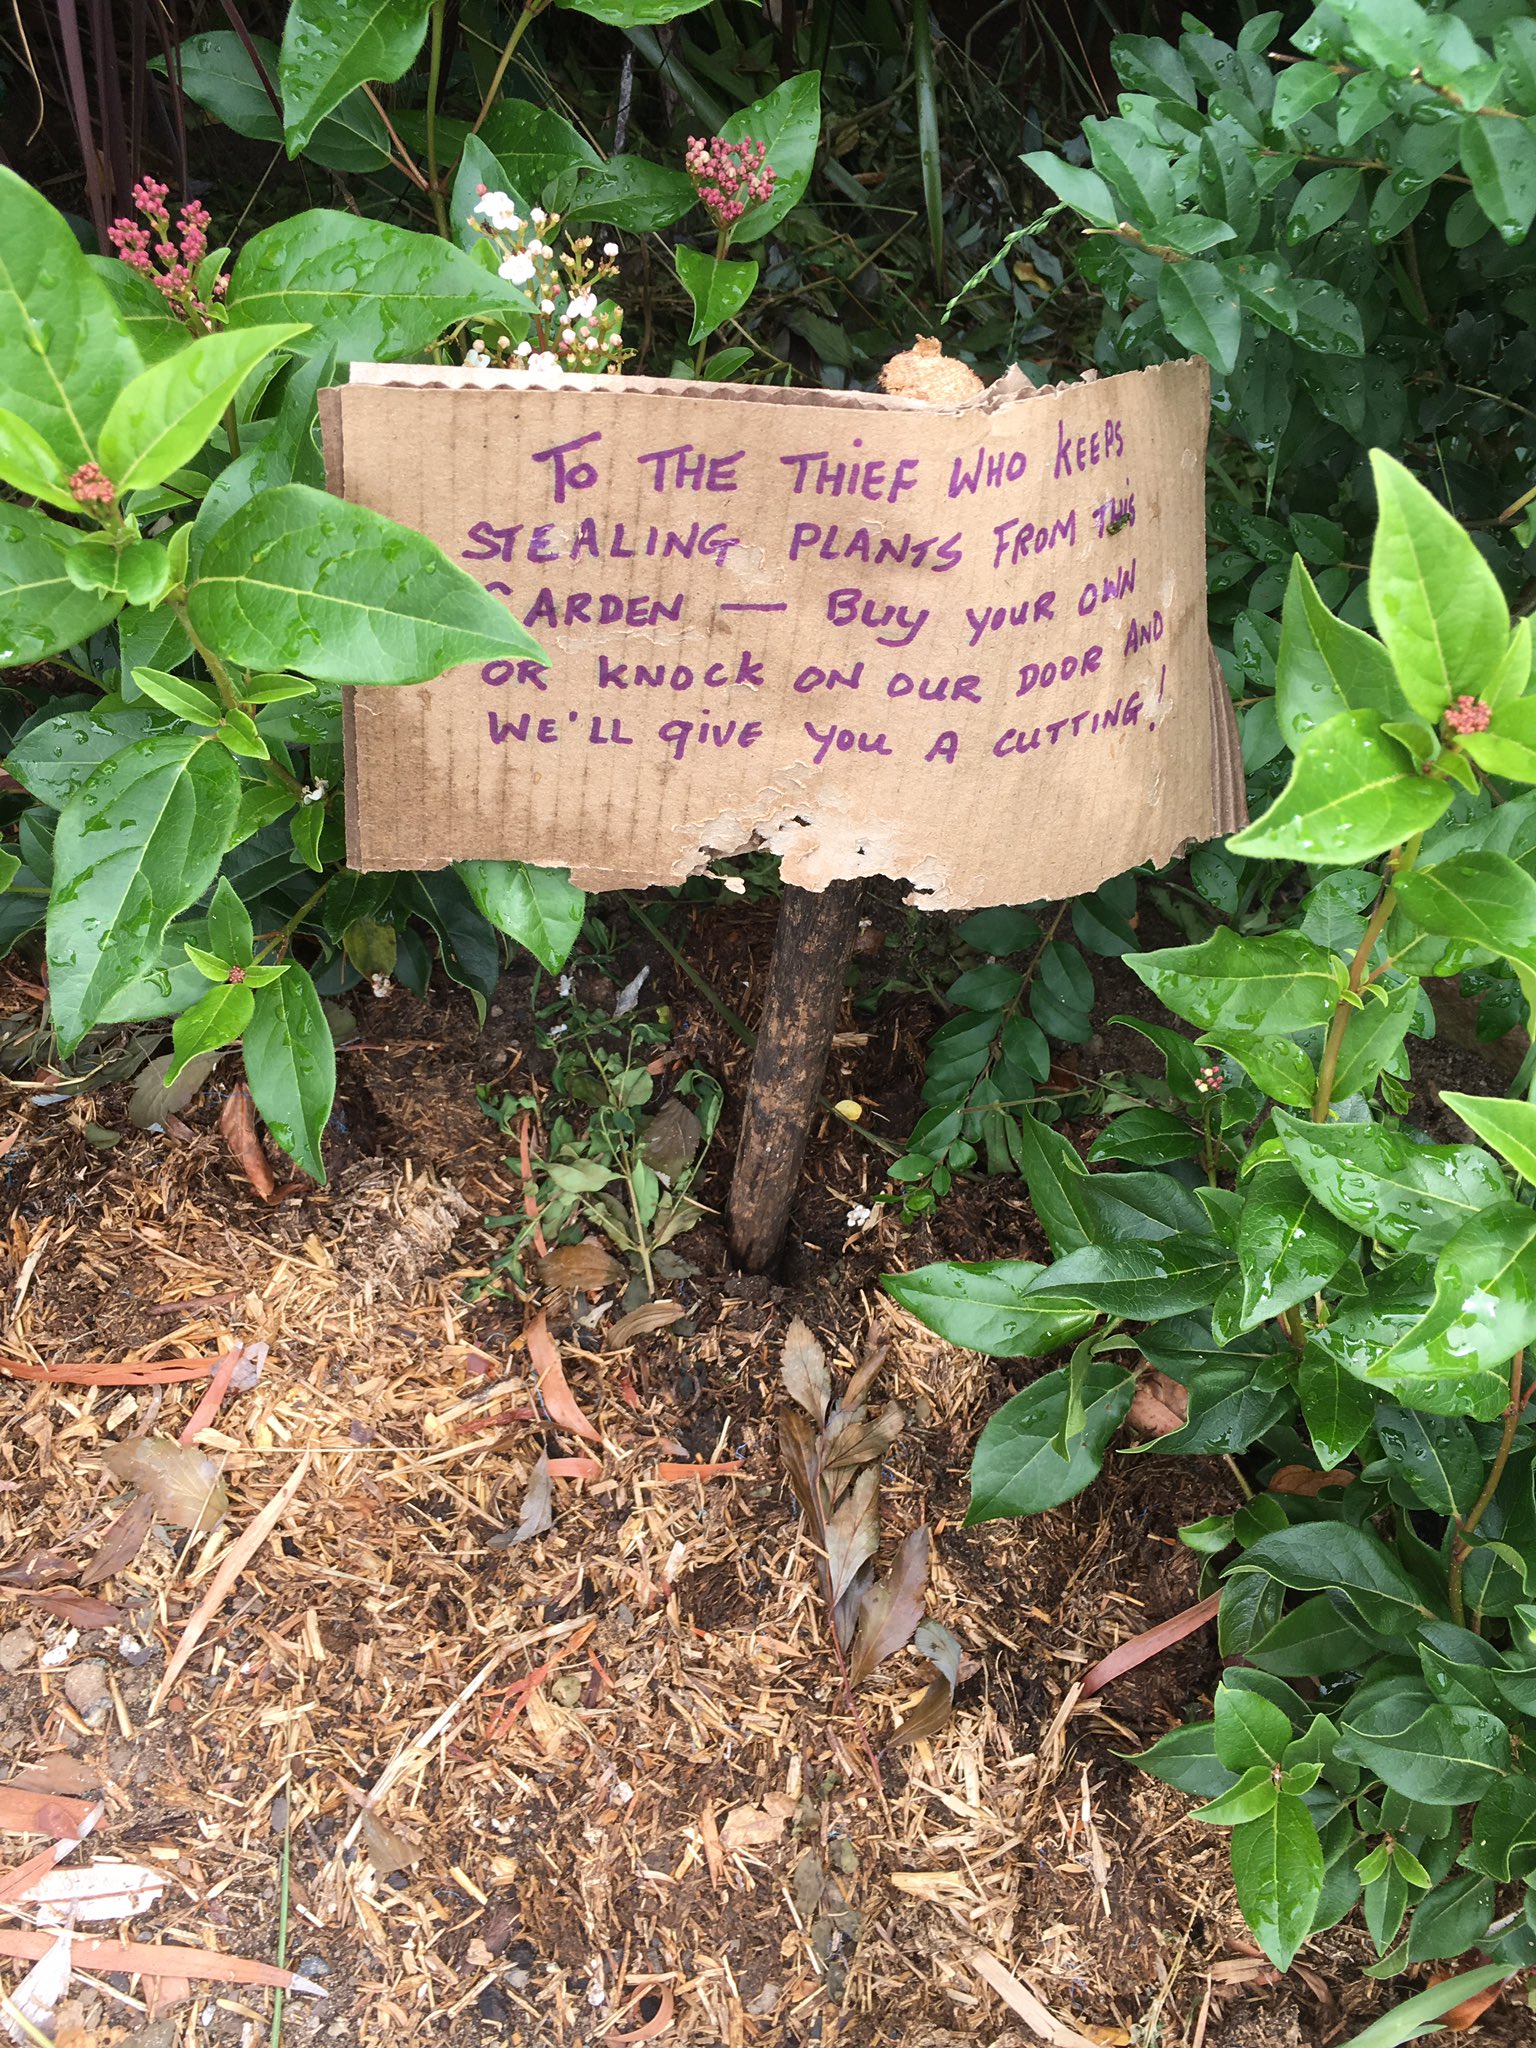 To THE THiEF WHO KEEPS
STEALING PLANTS FROM THIS
GARDEN — BUy YOUR OWN
OR KNOCK ON OUR DOOR AND
WE'LL giVE YOU A CUTTING!